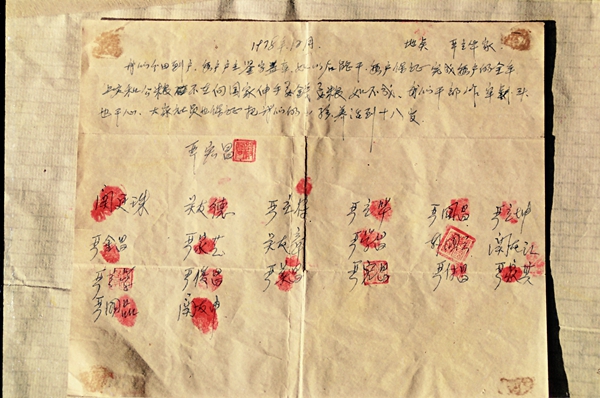 1978.12月. 地点 严立华家
我们分田到户,每户户主签字盖章,如以后能干,每户保证完成每户的全年
上交和公粮 不在向国家伸手要钱要粮,如不成,我们干部作牢刹头
也干心,大家社员也保证把我们的小孩养活到十八岁
严宏昌
关廷珠 关友德 严立符 严立华 严国昌 严立坤
严金昌 严家芝 关友章 严学昌 韩国云 关友江
严立学 严俊昌 严美昌 严宏昌 严付昌 严家其
严国品 关友申